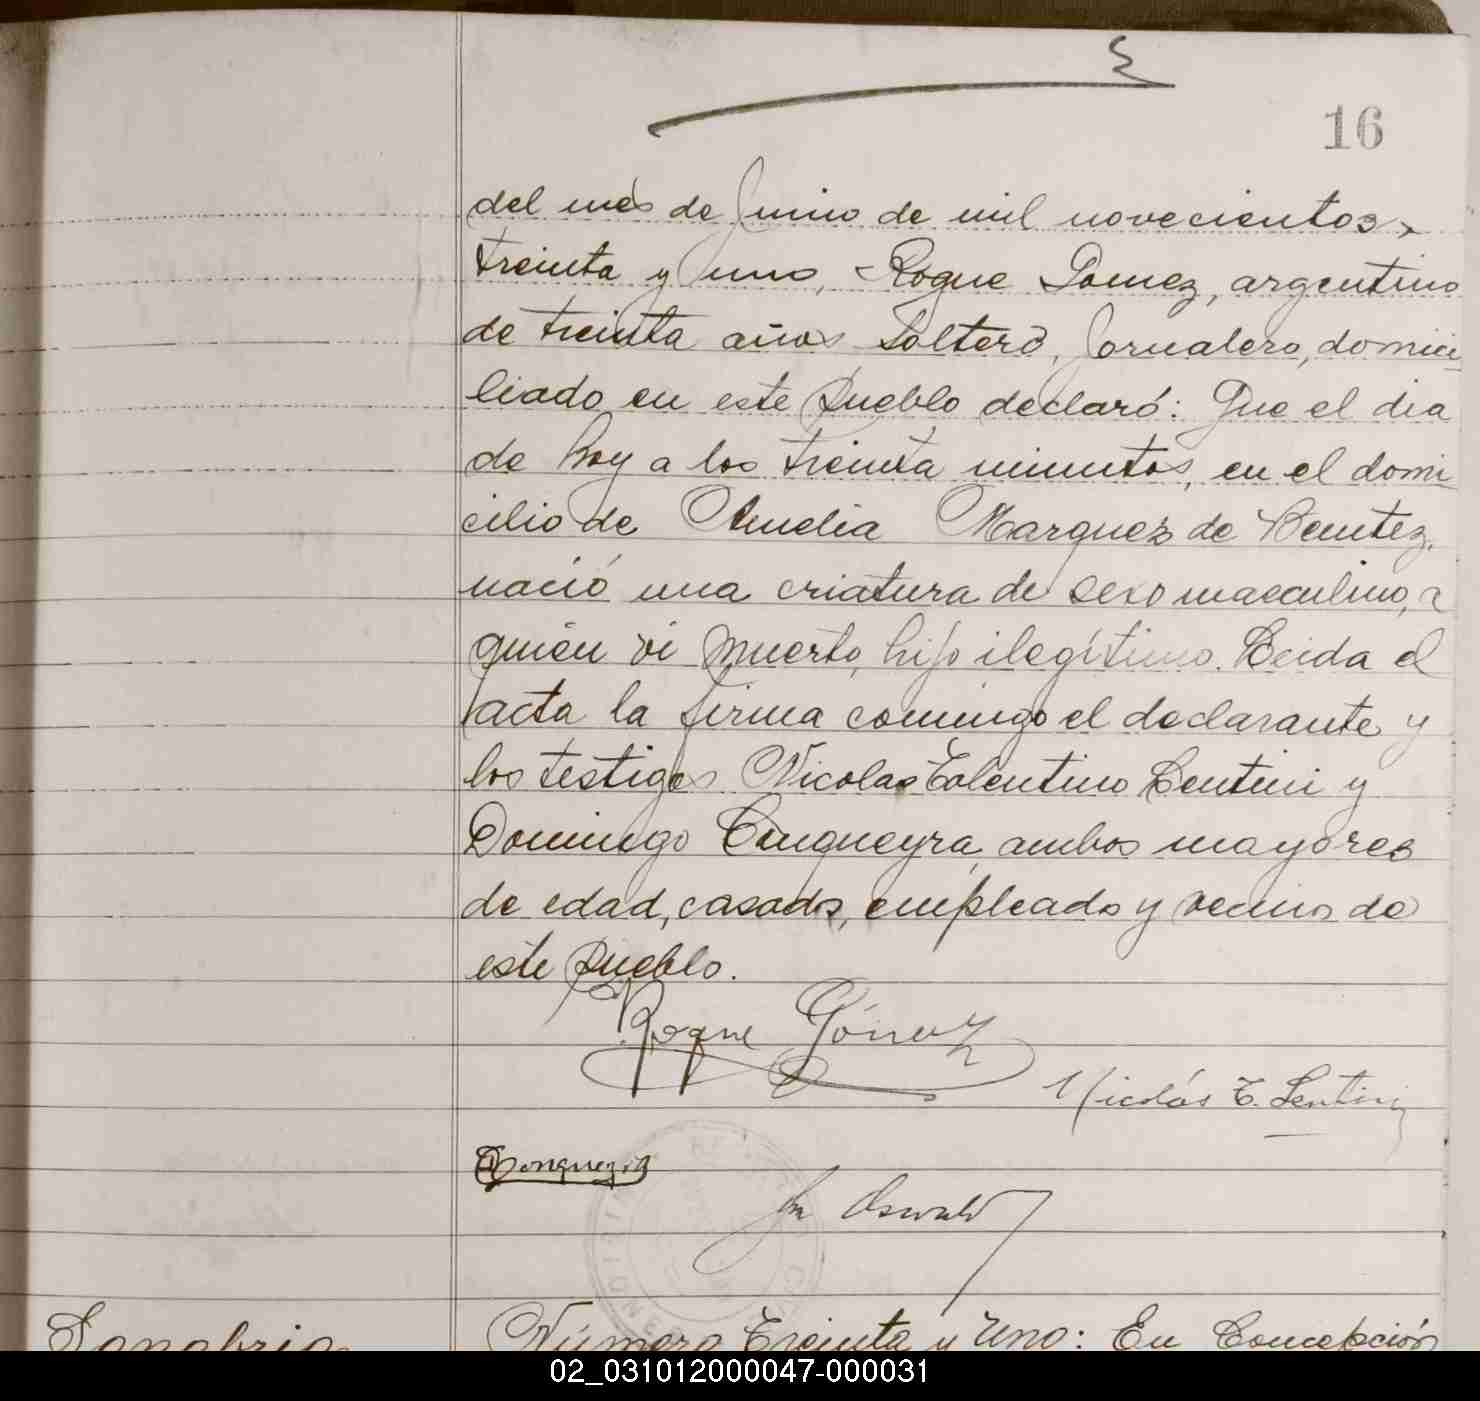 16
del més de Junio de mil novecientos
treinta y uno, Roque Gomez, argentino
de treinta años soltero, Jornalero, domici
liado en este Pueblo declaró: Que el dia
de hoy a los treinta minutos, en el domi
cilio de Amelia Marquez de Benitez,
nació una criatura de sexo masculino, a
quién vi muerto, hijo ilegítimo. Leida el
acta la firma comingo el declarante y
los testigos Nicolas Tolentino Lentini y
Domingo ambos mayores
de edad, casados, empleado y vecinos de
este Pueblo.
Roque Gómez
Nicolás T. Lentini
Oswald
Sanabria
Número Treinta y Uno: En Concepción
02_031012000047-000031